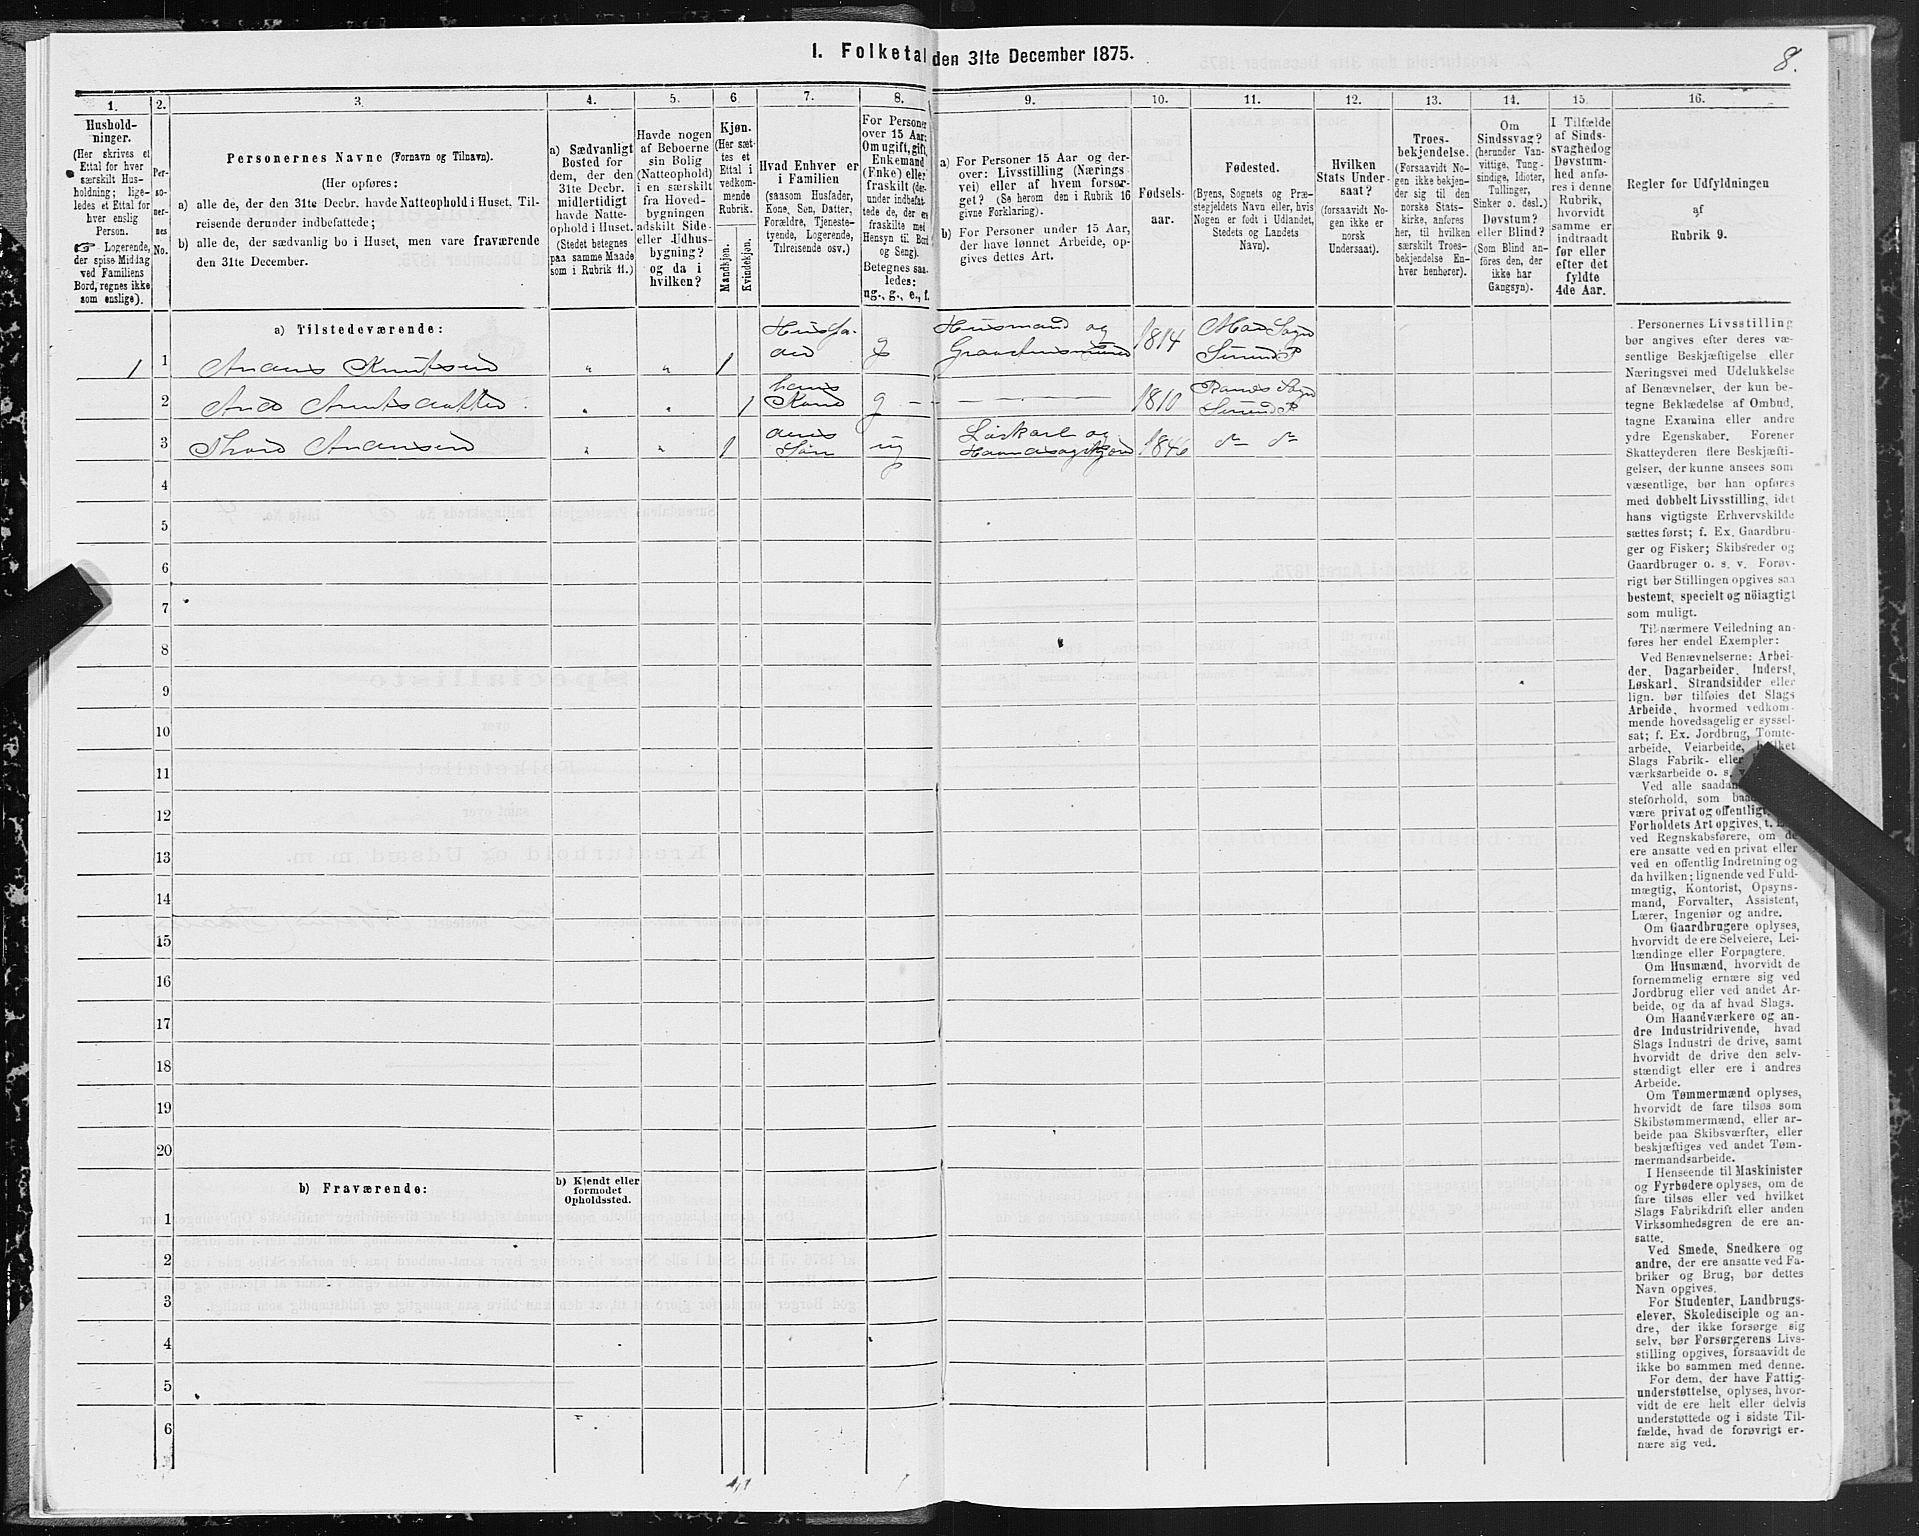 I. Folketal den 31te December 1875.
8.
1.
2.
3.
4.
5.
6
7.
8.
9.
10.
11.
12.
13.
14.
15.
16.
Hushold-
ninger.
(Her skrives et
Ettal for hver
særskilt Hus-
holdning; lige-
ledes et Ettal for
hver enslig
Person.
☞ Logerende,
der spise Middag
ved Familiens
Bord, regnes ikke
som enslige).
Per-
so-
ner-
nes
No.
Personernes Navne (Fornavn og Tilnavn).
(Her opføres:
a) alle de, der den 31te Decbr. havde Natteophold i Huset, Til-
reisende derunder indbefattede;
b) alle de, der sædvanlig bo i Huset, men vare fraværende
den 31te December.
a) Sædvanligt
Bosted for
dem, der den
31te Decbr.
midlertidigt
havde Natte-
ophold i Huset.
(Stedet betegnes
paa samme Maade
som i Rubrik 11.)
Havde nogen
af Beboerne
sin Bolig
(Natteophold)
i en særskilt
fra Hoved-
bygningen
adskilt Side-
eller Udhus-
bygning?
og da i
hvilken?
Kjøn.
(Her sæt-
tes et
Ettal i
vedkom-
mende
Rubrik.
Mandkjøn.
Kvindekjøn.
Hvad Enhver er
i Familien
(saasom Husfader,
Kone, Søn, Datter,
Forældre, Tjeneste-
tyende, Logerende,
Tilreisende osv.)
For Personer
over 15 Aar:
Om ugift, gift,
Enkemand
(Enke) eller
fraskilt (der-
under indbefat-
tede de, der er
fraskilte med
Hensyn til Bord
og Seng).
Betegnes saa-
ledes:
ug., g., e., f.
a) For Personer 15 Aar og der-
over: Livsstilling (Nærings-
vei) eller af hvem forsør-
get? (Se herom den i Rubrik 16
givne Forklaring).
b) For Personer under 15 Aar,
der have lønnet Arbeide, op-
gives dettes Art.
Fødsels-
aar.
Fødested.
(Byens, Sognets og Præ-
stegjeldets Navn, eller, hvis
Nogen er født i Udlandet,
Stedets og Landets
Navn).
Hvilken
Stats Under-
saat?
(forsaavidt No-
gen ikke er
norsk
Undersaat).
Troes-
bekjendelse.
(Forsaavidt No-
gen ikke bekjen-
der sig til den
norske Stats-
kirke, anføres
her, til hvilken
særskilt Troes-
bekjendelse En-
hver henhører).
Om
Sindssvag?
(herunder Van-
vittige, Tung-
sindige, Idioter,
Tullinger,
Sinker o. desl.)
Døvstum?
eller Blind?
(Som Blind an-
føres den, der
ikke har
Gangsyn).
I Tilfælde
af Sinds-
svaghed og
Døvstum-
hed anfø-
res i denne
Rubrik,
hvorvidt
samme er
indtraadt
før eller
efter det
fyldte
4de Aar.
Regler for Udfyldningen
af
Rubrik 9.
a) Tilstedeværende:
1 1 Anders Knutsen " " 1 Husfa-
der g Husmand og
1814
2 " " 1 hans
Kone g — — — — — 1810
3 Anderson " " 1 deres
Søn ug Løskarl og
1846 do do
4
5
6
7
8
9
10
11
12
13
14
15
16
17
18
19
20
b) Fraværende:
b) Kjendt eller
formodet
Opholdssted.
1
2
3
4
5
6
Personernes Livsstilling
bør angives efter deres væ-
sentlige Beskjæftigelse eller
Næringsvei med Udelukkelse
af Benævnelser, der kun be-
tegne Beklædelse af Ombud,
tagne Examina eller andre
ydre Egenskaber. Forener
Skatteyderen flere Beskjæfti-
gelser, der kunne ansees som
væsentlige, bør han opføres
med dobbelt Livsstilling, idet
hans vigtigste Erhvervskilde
sættes først; f. Ex. Gaardbru-
ger og Fisker; Skibsreder og
Gaardbruger o. s. v. Forøv-
rigt bør Stillingen opgives saa
bestemt, specielt og nöiagtigt
som muligt.
Til nærmere Veiledning an-
føres her endel Exempler:
Ved Benævnelserne: Arbei-
der, Dagarbeider, Inderst,
Løskarl, Strandsidder eller
lign. bør tilføies det Slags
Arbeide, hvormed vedkom-
mende hovedsagelig er syssel-
sat; f. Ex. Jordbrug, Tomte-
arbeide, Veiarbeide, hvilket
Slags Fabrik- eller
værksarbeide o. s. v.
Ved alle saadanne
steforhold, som baade
være privat og offentligt,
Forholdets Art opgives, t. Ex.
ved Regnskabsførere, om de
ere ansatte ved en privat eller
ved en offentlig Indretning og
da hvilken; lignende ved Fuld-
mægtig, Kontorist, Opsyns-
mand, Forvalter, Assistent,
Lærer, Ingeniør og andre.
Om Gaardbrugere oplyses,
hvorvidt de ere Selveiere, Lei-
lændinge eller Forpagtere.
Om Husmænd, hvorvidt de
fornemmelig ernære sig ved
Jordbrug eller ved andet Ar-
beide, og da af hvad Slags.
Om Haandværkere og an-
dre Industridrivende, hvad
Slags Industri de drive, samt
hvorvidt de drive den selv-
stændigt eller ere i andres
Arbeide.
Om Tømmermænd oplyses,
hvorvidt de fare tilsøs som
Skibstømmermænd, eller ar-
beide paa Skibsværfter, eller
beskjæftiges ved andet Tøm-
mermandsarbeide.
I Henseende til Maskinister
og Fyrbødere oplyses, om de
fare tilsøs eller ved hvilket
Slags Fabrikdrift eller anden
Virksomhedsgren de ere an-
satte.
Ved Smede, Snedkere og
andre, der ere ansatte ved Fa-
briker og Brug, bør dettes
Navn opgives.
For Studenter, Landbrugs-
elever, Skoledisciple og an-
dre, der ikke forsørge sig
selv, bør Forsørgerens Livs-
stilling opgives, forsaavidt de
ikke bo sammen med denne.
For dem, der have Fattig-
understøttelse, oplyses, hvor-
vidt de ere helt eller delvis
understøttede og i sidste Til-
fælde, hvad de forøvrigt er-
nære sig ved.